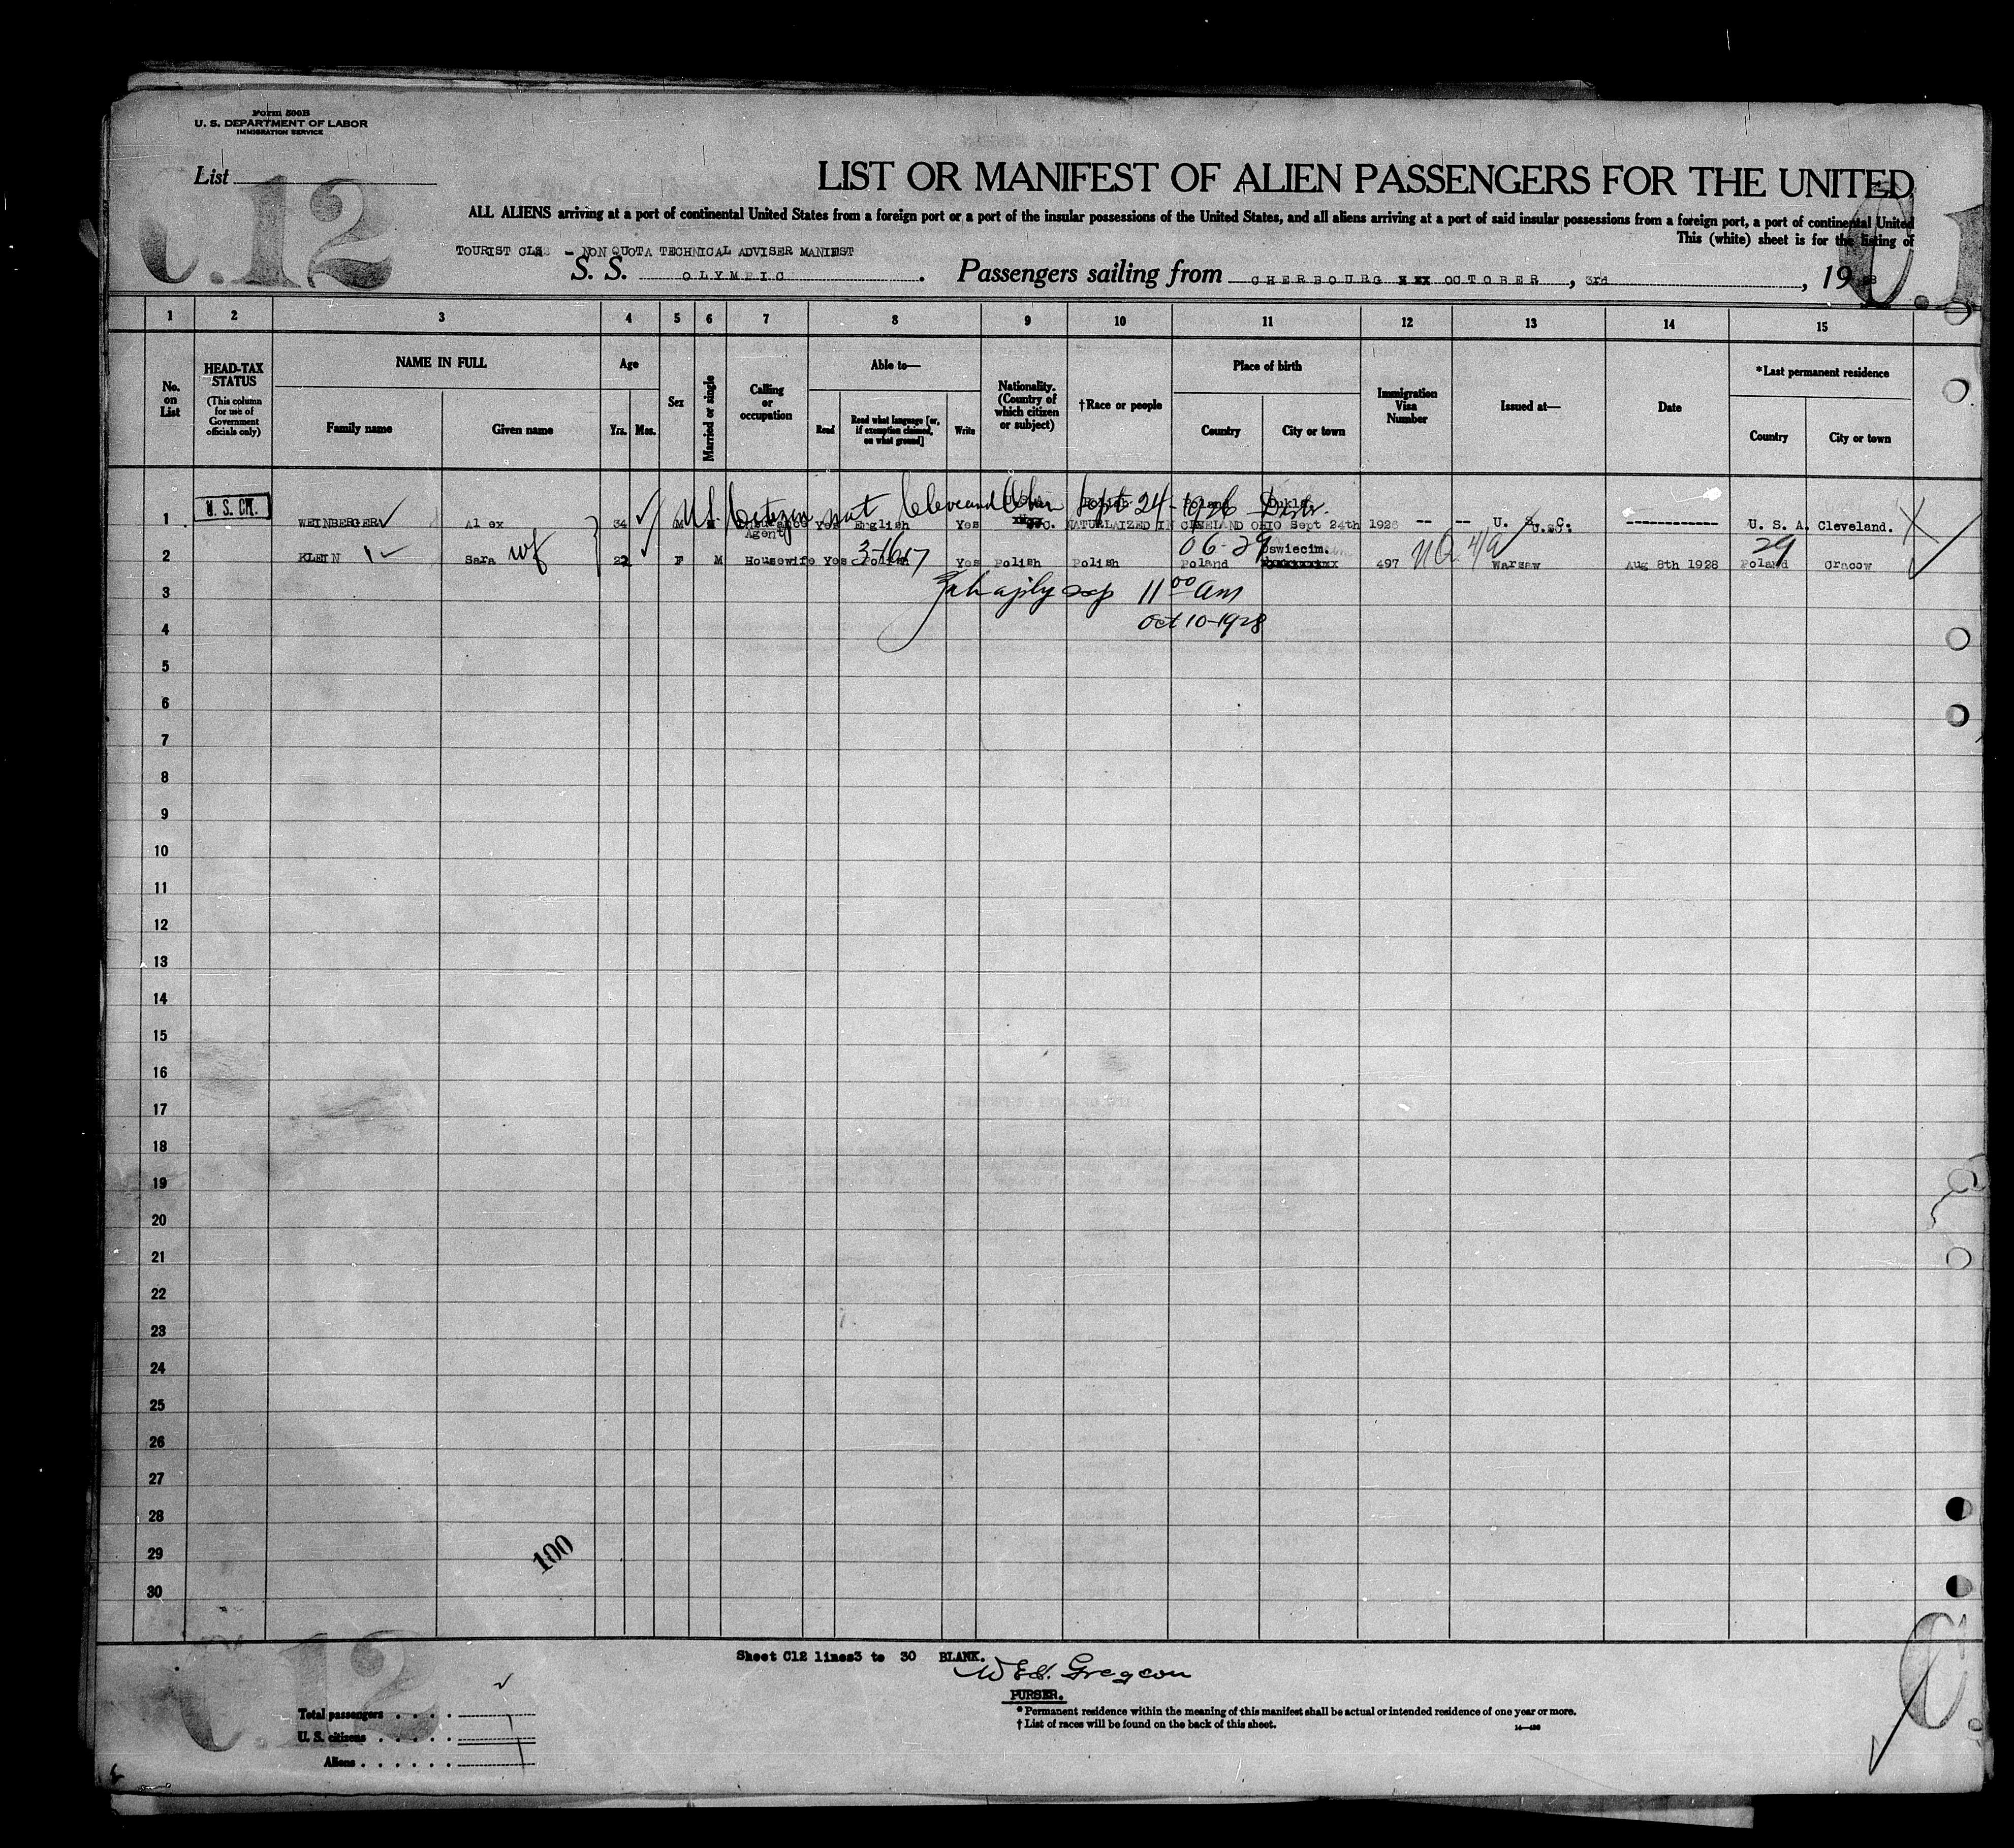 Form 500B
U. S. DEPARTMENT OF LABOR
IMMIGRATION SERVICE
List
C.12
LIST OR MANIFEST OF ALIEN PASSENGERS FOR THE UNITED
ALL ALIENS arriving at a port of continental United States from a foreign port or a port of the insular possessions of the United States, and all aliens arriving at a port of said insular possessions from a foreign port, a port of continental United
This (white) sheet is for the listing of
TOURIST CLSS - NON QUOTA TECHNICAL ADVISER MANIEST
S. S. OLYMPIC. Passengers sailing from CHERBOURG OCTOBER, 3rd, 1928
1 2 3 4 5 6 7 8 9 10 11 12 13 14 15
No. on List
HEAD-TAX STATUS
(This column for use of Government officials only)
NAME IN FULL
Family name Given name
Age
Yrs. Mos.
Sex
Married or single
Calling or occupation
Able to—
Read Read what language [or, if exemption claimed, on what ground] Write
Nationality. (Country of which citizen or subject)
†Race or people
Place of birth
Country City or town
Immigration Visa Number
Issued at—
Date
*Last permanent residence
Country City or town
U. S. CIT.
U.S. Citizen nat Cleveland Ohio Sept 24-1926
1 WEINBERGER Al ex 34 M M Insurance Agent Yes English Yes NATURLAIZED IN CLEELAND OHIO Sept 24th 1926 -- -- U. S. C. ------------ U. S. A. Cleveland.
3-1617 06-29 29
2 KLEIN Sara wf 22 F M Housewife Yes Polish Yes Polish Polish Poland Oswiecim. 497 NQ 4/a Warsaw Aug 8th 1928 Poland Cracow
3 11 00 am
4 Oct 10-1928
5
6
7
8
9
10
11
12
13
14
15
16
17
18
19
20
21
22
23
24
25
26
27
28
29
30
100
Sheet C12 lines3 to 30 BLANK.
PURSER.
Total passengers
U. S. citizens
Aliens
* Permanent residence within the meaning of this manifest shall be actual or intended residence of one year or more.
† List of races will be found on the back of this sheet.
C.12